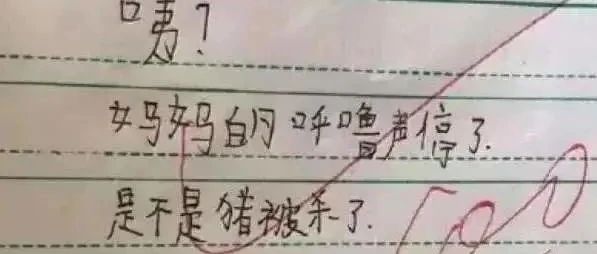 咦?
妈妈的呼噜声停了.
是不是猪被杀了.